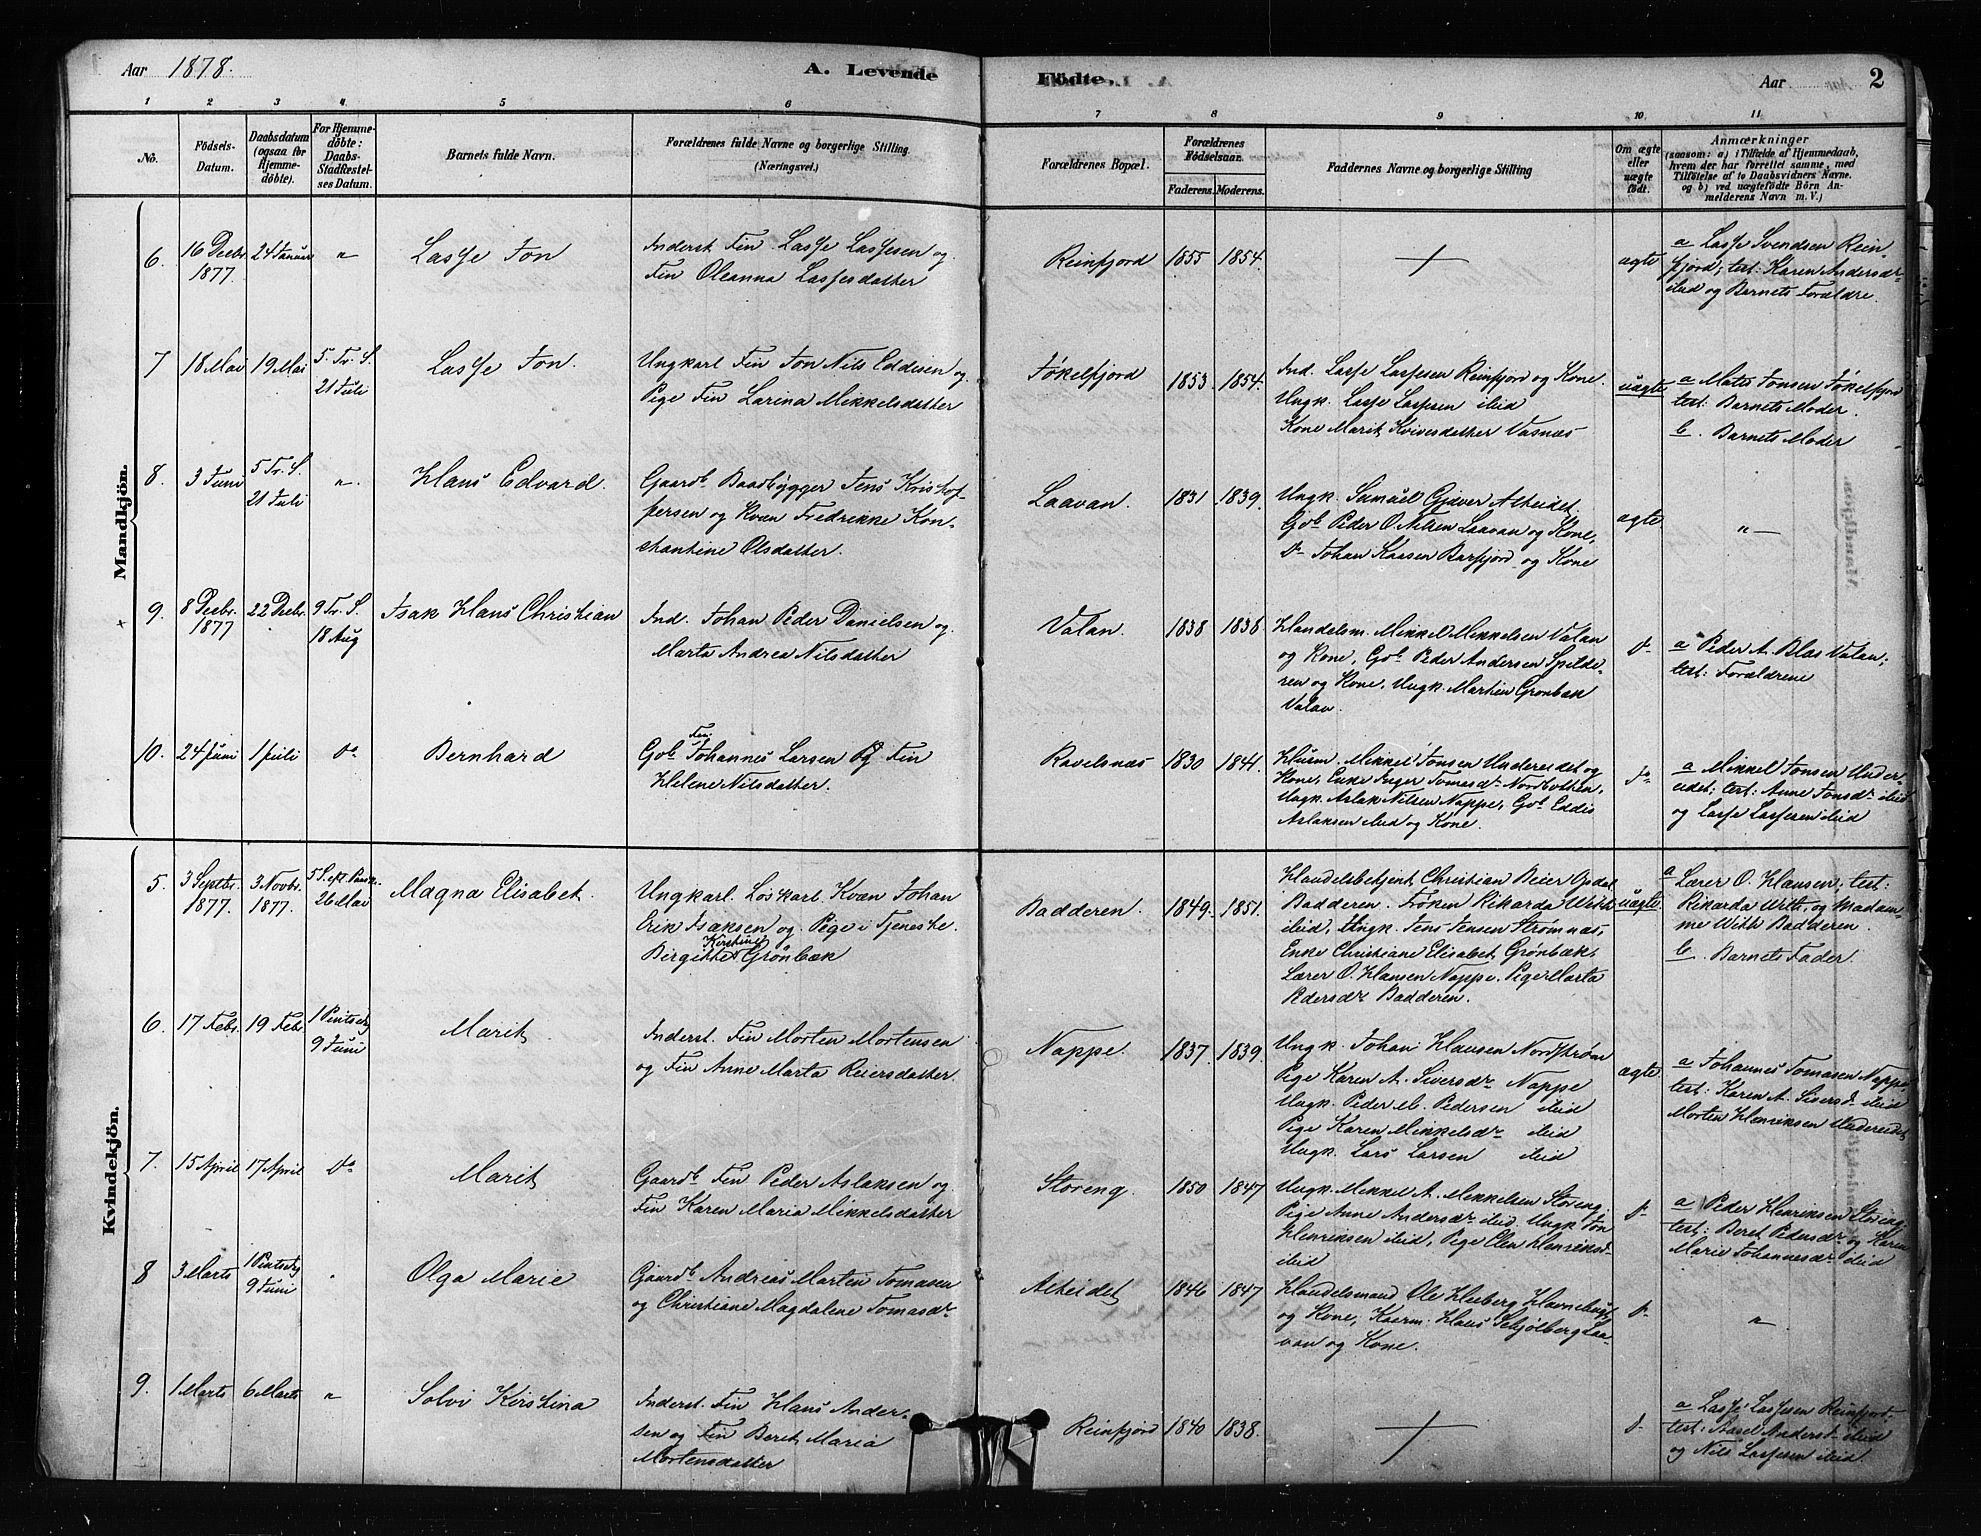 Aar 1878.
A. Levende
Födte.
Aar
2
1
2
3
4
5
6
7
8
9
10
11
No.
Födsels-
Datum.
Daabsdatum
(ogsaa for
Hjemme-
döbte).
For Hjemme-
döbte:
Daabs-
Stadfæstel-
ses Datum.
Barnets fulde Navn.
Forældrenes fulde Navne og borgerlige Stilling
(Næringsvei.)
Forældrenes Bopæl.
Forældrenes
Födselsaar.
Faderens.
Moderens.
Faddernes Navne og borgerlige Stilling
Om ægte
eller
uægte
födt.
Anmærkninger
(saasom: a) i Tilfælde af Hjemmedaab,
hvem der har forrettet samme, med
Tilföielse af to Daabsvidners Navne.
og b) ved uægtefödte Börn An-
melderens Navn m. V.)
Mandkjön.
6.
16 Decbr.
1877.
24 Januar
"
Lasse Jon
Inderst Fin Lasse Lassesen og
Fin Oleanna Lassesdatter
Reinfjord
1855
1854.
ægte
a Lasse Svendsen Rein
fjord; test: Karen Andersdr
ibid og Barnets Forældre.
7
18 Mai
19 Mai
5. Tr. S.
21 Juli
Lasse Jon
Ungkarl Fin Jon Nils Eddisen og
Pige Fin Larina Mikkelsdatter
Jøkelfjord
1853.
1854.
Ind. Lasse Lassesen Reinfjord og Kone.
Ungk. Lasse Lassesen ibid
Kone Marit Kvivesdatter Vasnæs
uægte
a Mates Jonsen Jøkelfjord
test: Barnets Moder.
b. Barnets Moder
8.
3 Juni
5 Tr. S.
21 Juli
"
Hans Edvard.
Gaardb. Baadbygger Jens Kristof-
fersen og Kvæn Fredrikke Kon-
stantine Olsdatter.
Laavan.
1831
1839.
Ungk. Samuel Gjæver Alteidet
Gbr. Peder O. Nilsen Laavan og Kone,
do Johan Kaasen Burfjord og Kone
ægte
"
9.
8 Decbr.
1877
22 Decbr.
9 Tr. S.
18 Aug
Isak Hans Christian
Ind. Johan Peder Danielsen og
Marta Andrea Nilsdatter
Valan.
1838
1838
Handelsm. Mikkel Mikkelsen Valan
og Kone, Gbr. Peder Andersen Spilde-
ren og Kone, Ungk. Martin Grønbæk
Valan.
do
a Peder A. Blas Valan;
test: Forældrene
10.
24 Juni
1 Juli
do
Bernhard
Fin
Gbr. Johannes Larsen og Fin
Helene Nilsdatter.
Ravelsnæs
1830
1841.
Husm. Mikkel Jonsen Undereidet og
Kone, Enke Inger Tomasdr Nordbotten,
Ungk. Aslak Nilsen Nappe, Gbr. Eddis
Aslaksen ibid og Kone.
do
a Mikkel Jonsen Under-
eidet; test: Anne Jonsdr ibid
og Lasse Lassesen ibid
Kvindekjön.
5.
3 Septbr.
1877.
3 Novbr.
1877.
5 S. eft. Paaske
26 Mai
Magna Elisabet.
Ungkarl. Løskarl Kvæn Johan
Erik Isaksen og Pige i Tjeneste
Kirstine
Birgitte Grönbæk
Badderen.
1849.
1851.
Handelsbetjent Christian Beier Opdal
Badderen. Frøken Rikarda With
ibid, Ungk. Jens Jensen Strømnæs,
Enke Christiane Elisabet Grønbæk,
Lærer O. Hansen Nappe, Pige Marta
Pedersdr Badderen.
uægte.
a Lærer O. Hansen; test:
Rikarda With, og Madam-
me With Badderen.
b. Barnets Fader.
6.
17 Febr.
19 Febr.
1 Pintsedg
9 Juni
Marit
Inderst. Fin Morten Mortensen
og Fin Anne Marta Reiersdatter.
Nappe.
1837.
1839.
Ungk. Johan Hansen Nordstrøm
Pige Karen A. Siversdr Nappe
Ungk. Peder M. Pedersen ibid
Pige Karen Mikkelsdr ibid
Ungk. Lars Larsen ibid
ægte
a Johannes Tomasen Nappe,
test: Karen A. Siversd ibid
Morten Henriksen Undereidet
7.
15 April
17 April
do
Marit
Gaardb. Fin Peder Aslaksen og
Fin Karen Maria Mikkelsdatter
Storeng.
1850
1847
Ungk. Mikkel A. Mikkelsen Storeng,
Pige Anne Andersdr ibid, Ungk Jon
Henriksen ibid, Pige Elen Henriksd.
ibid
do
a Peder Henriksen Storeng,
test: Beret Pedersdr og Karen
Marie Johannesdr ibid
8
3 Marts
1 Pintsedg
9 Juni
"
Olga Marie
Gaardb. Andreas Martin Tomasen
og Christiane Magdalene Tomasdr
Alteidet
1846
1847
Handelsmand Ole Kleberg Havnebugt
og Kone, Kaarm. Hans Schjølberg Laa-
van og Kone.
do
"
9.
1 Marts
6 Marts
"
Solvi Kirstina
Inderst. Fin Hans Ander-
sen og Fin Beret Maria
Mortensdatter
Reinfjord
1840
1838.
do
a Lasse Lassesen Reinfjord,
test: Aasel Andersd ibid
og Nils Lassesen ibid.